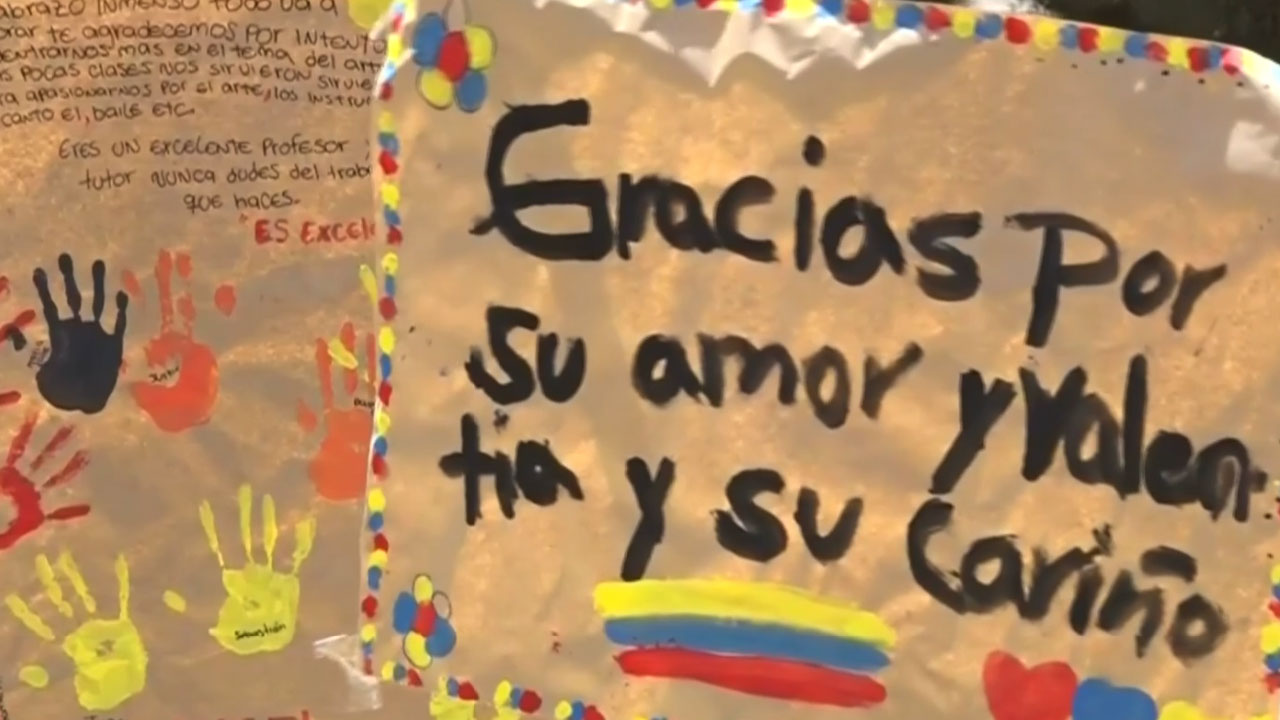 abrazo INMENSO TODO va a
orar te agradecemos por INTENTO
entrarnos mas en el tema del art
s pocas clases nos sirvieron sirvie
ra apasionarnos por el arte, los instru
canto el, baile etc.
Eres un excelente profesor
tutor nunca dudes del trab
que haces.
"ES EXCEL
Sebastián
Gracias Por
su amor y Valen
tia y su Cariño